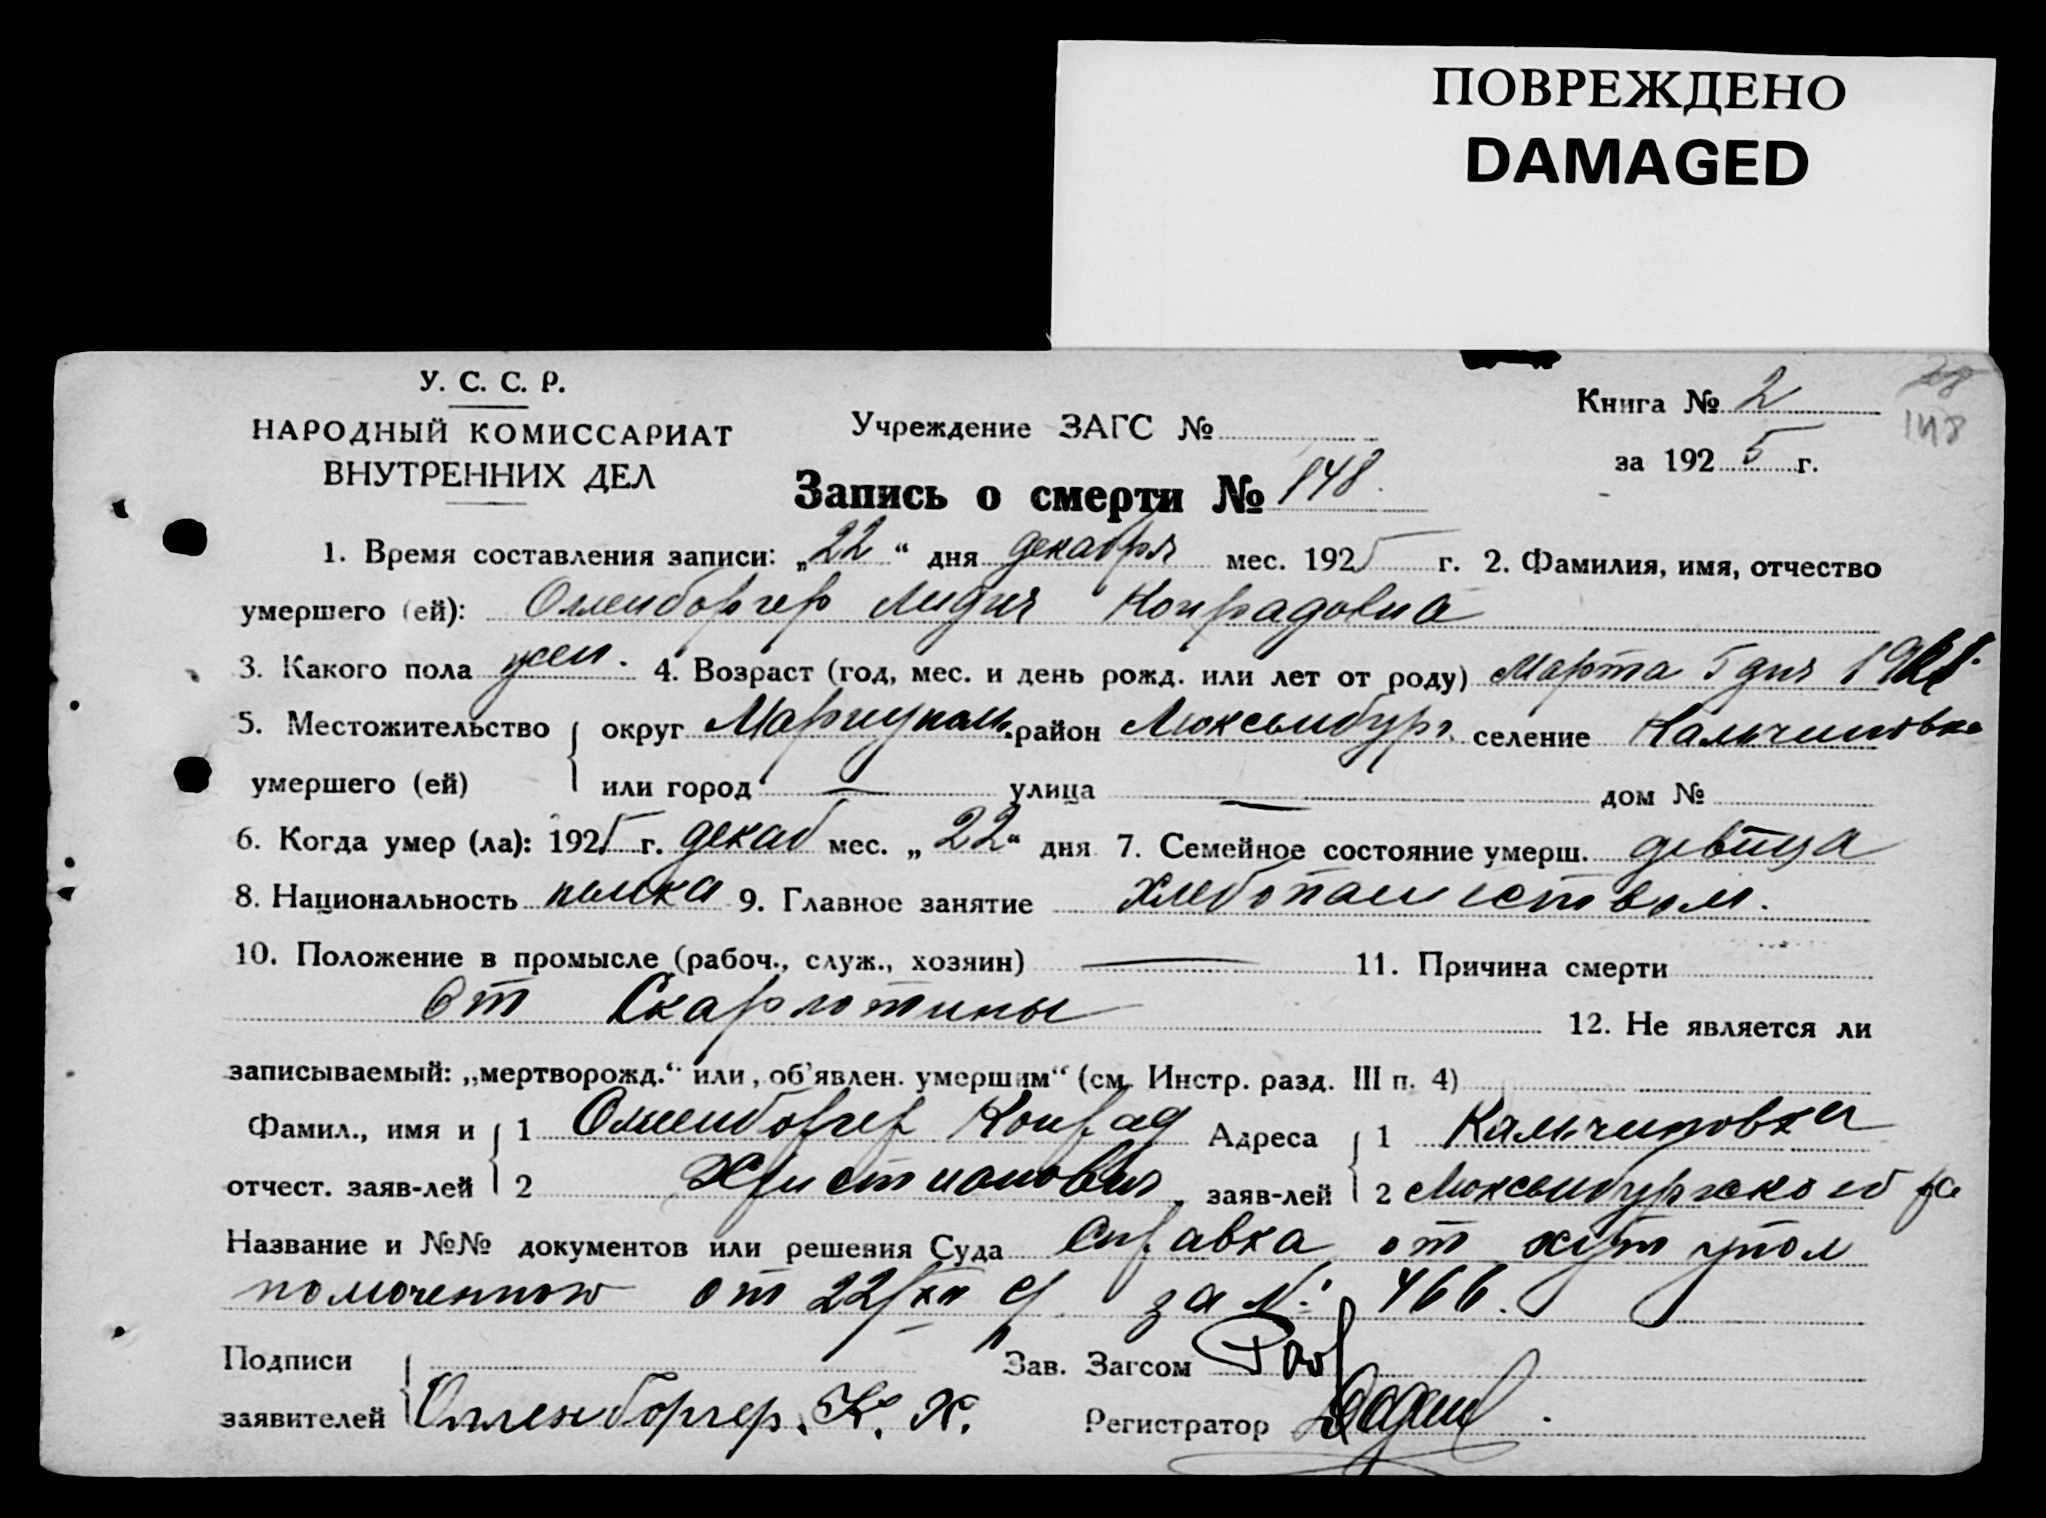 ПОВРЕЖДЕНО
DAMAGED
У. С. С. Р.
НАРОДНЫЙ КОМИССАРИАТ
ВНУТРЕННИХ ДЕЛ
Учреждение ЗАГС №
Книга № 2
148
за 1925 г.
Запись о смерти № 148.
1. Время составления записи: „22“ дня декабря мес. 1925 г. 2. Фамилия, имя, отчество
умершего (ей): Олленборгер Лидия Конрадовна
3. Какого пола жен. 4. Возраст (год, мес. и день рожд. или лет от роду) Марта 5 дня
5. Местожительство округ Мариуполь. район Люксембург селение Кальчиновка
умершего (ей) или город — улица — дом №
6. Когда умер (ла): 1925 г. декаб мес. „22“ дня 7. Семейное состояние умерш. девица
8. Национальность немка 9. Главное занятие хлебопашеством.
10. Положение в промысле (рабоч., служ., хозяин) — 11. Причина смерти
от Скарлотины 12. Не является ли
записываемый: „мертворожд.“ или „об'явлен. умершим“ (см. Инстр. разд. III п. 4)
Фамил., имя и 1 Олленборгер Конрад Адреса 1 Кальчиновка
отчест. заяв-лей 2 Христианович заяв-лей 2 Люксембургского ра
Название и №№ документов или решения Суда Справка от хут упол
номоченного от 22/XII с/ за №: 466.
Подписи Зав. Загсом
заявителей Олленборгер. К. Х. Регистратор